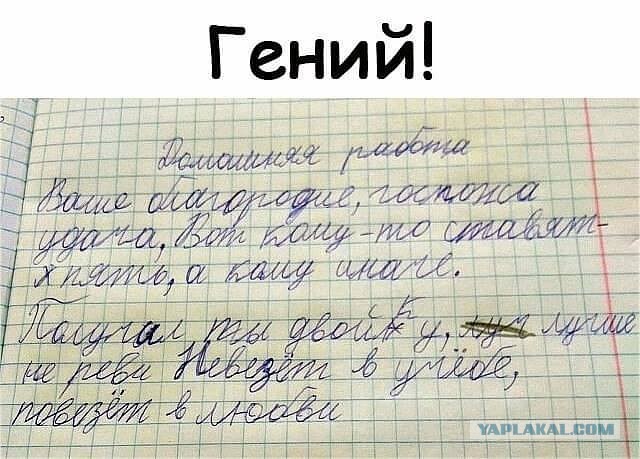 Гений!
Домашняя работа
Ваше благородие, госпожа
удача, Вот кому-то ставят-
х пять, а кому иначе.
Получал ты двойку, луч лучше
не реви Невезёт в учёбе,
повезёт в любви
YAPLAKAL.COM